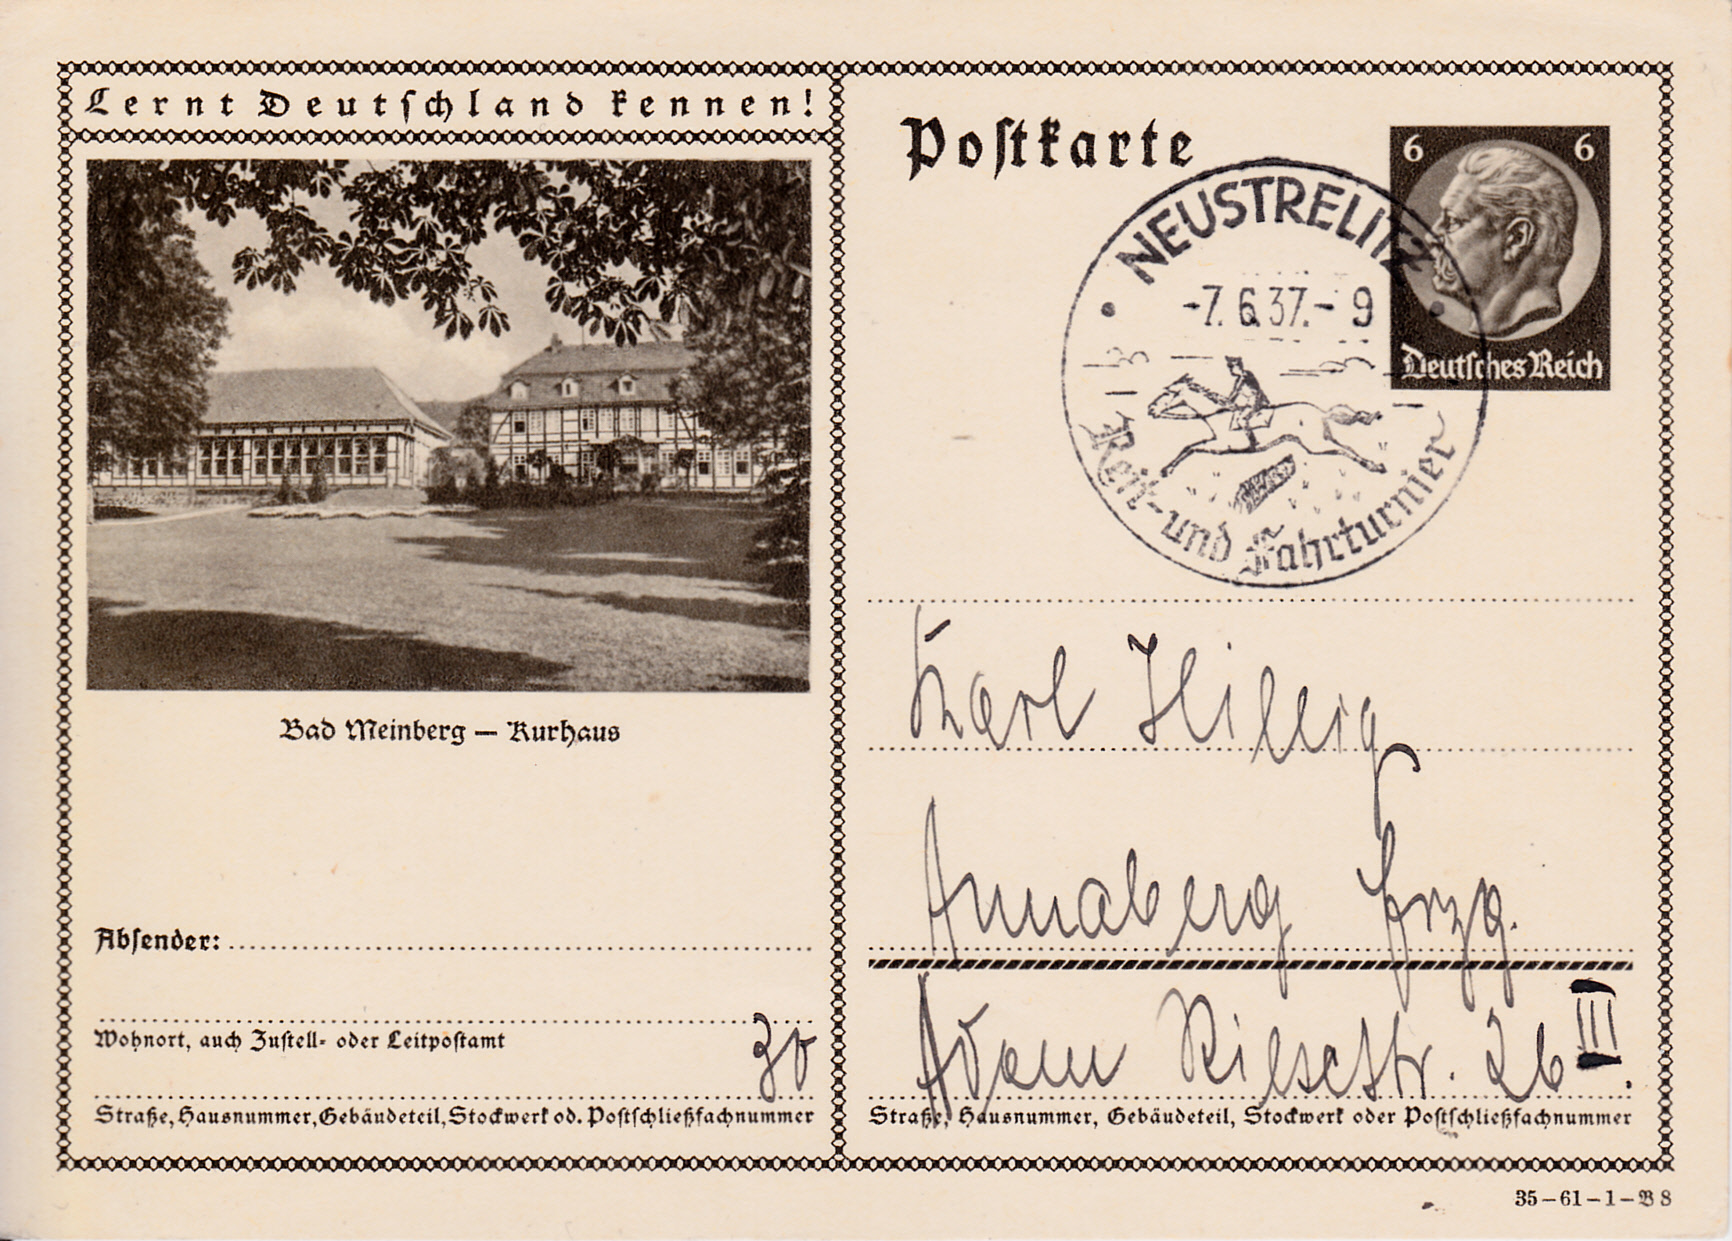 Lernt Deutschland kennen!
Bad Meinberg — Kurhaus
Absender:
Wohnort, auch Zustell- oder Leitpostamt
30
Straße, Hausnummer, Gebäudeteil, Stockwerk od. Postschließfachnummer
Postkarte
6 6
Deutsches Reich
NEUSTRELITZ
-7.6.37.-9
Reit- und Fahrturnier
Karl Hillig
Annaberg Erzg.
Adam Riesestr. 26 III.
Straße, Hausnummer, Gebäudeteil, Stockwerk oder Postschließfachnummer
35-61-1-B 8